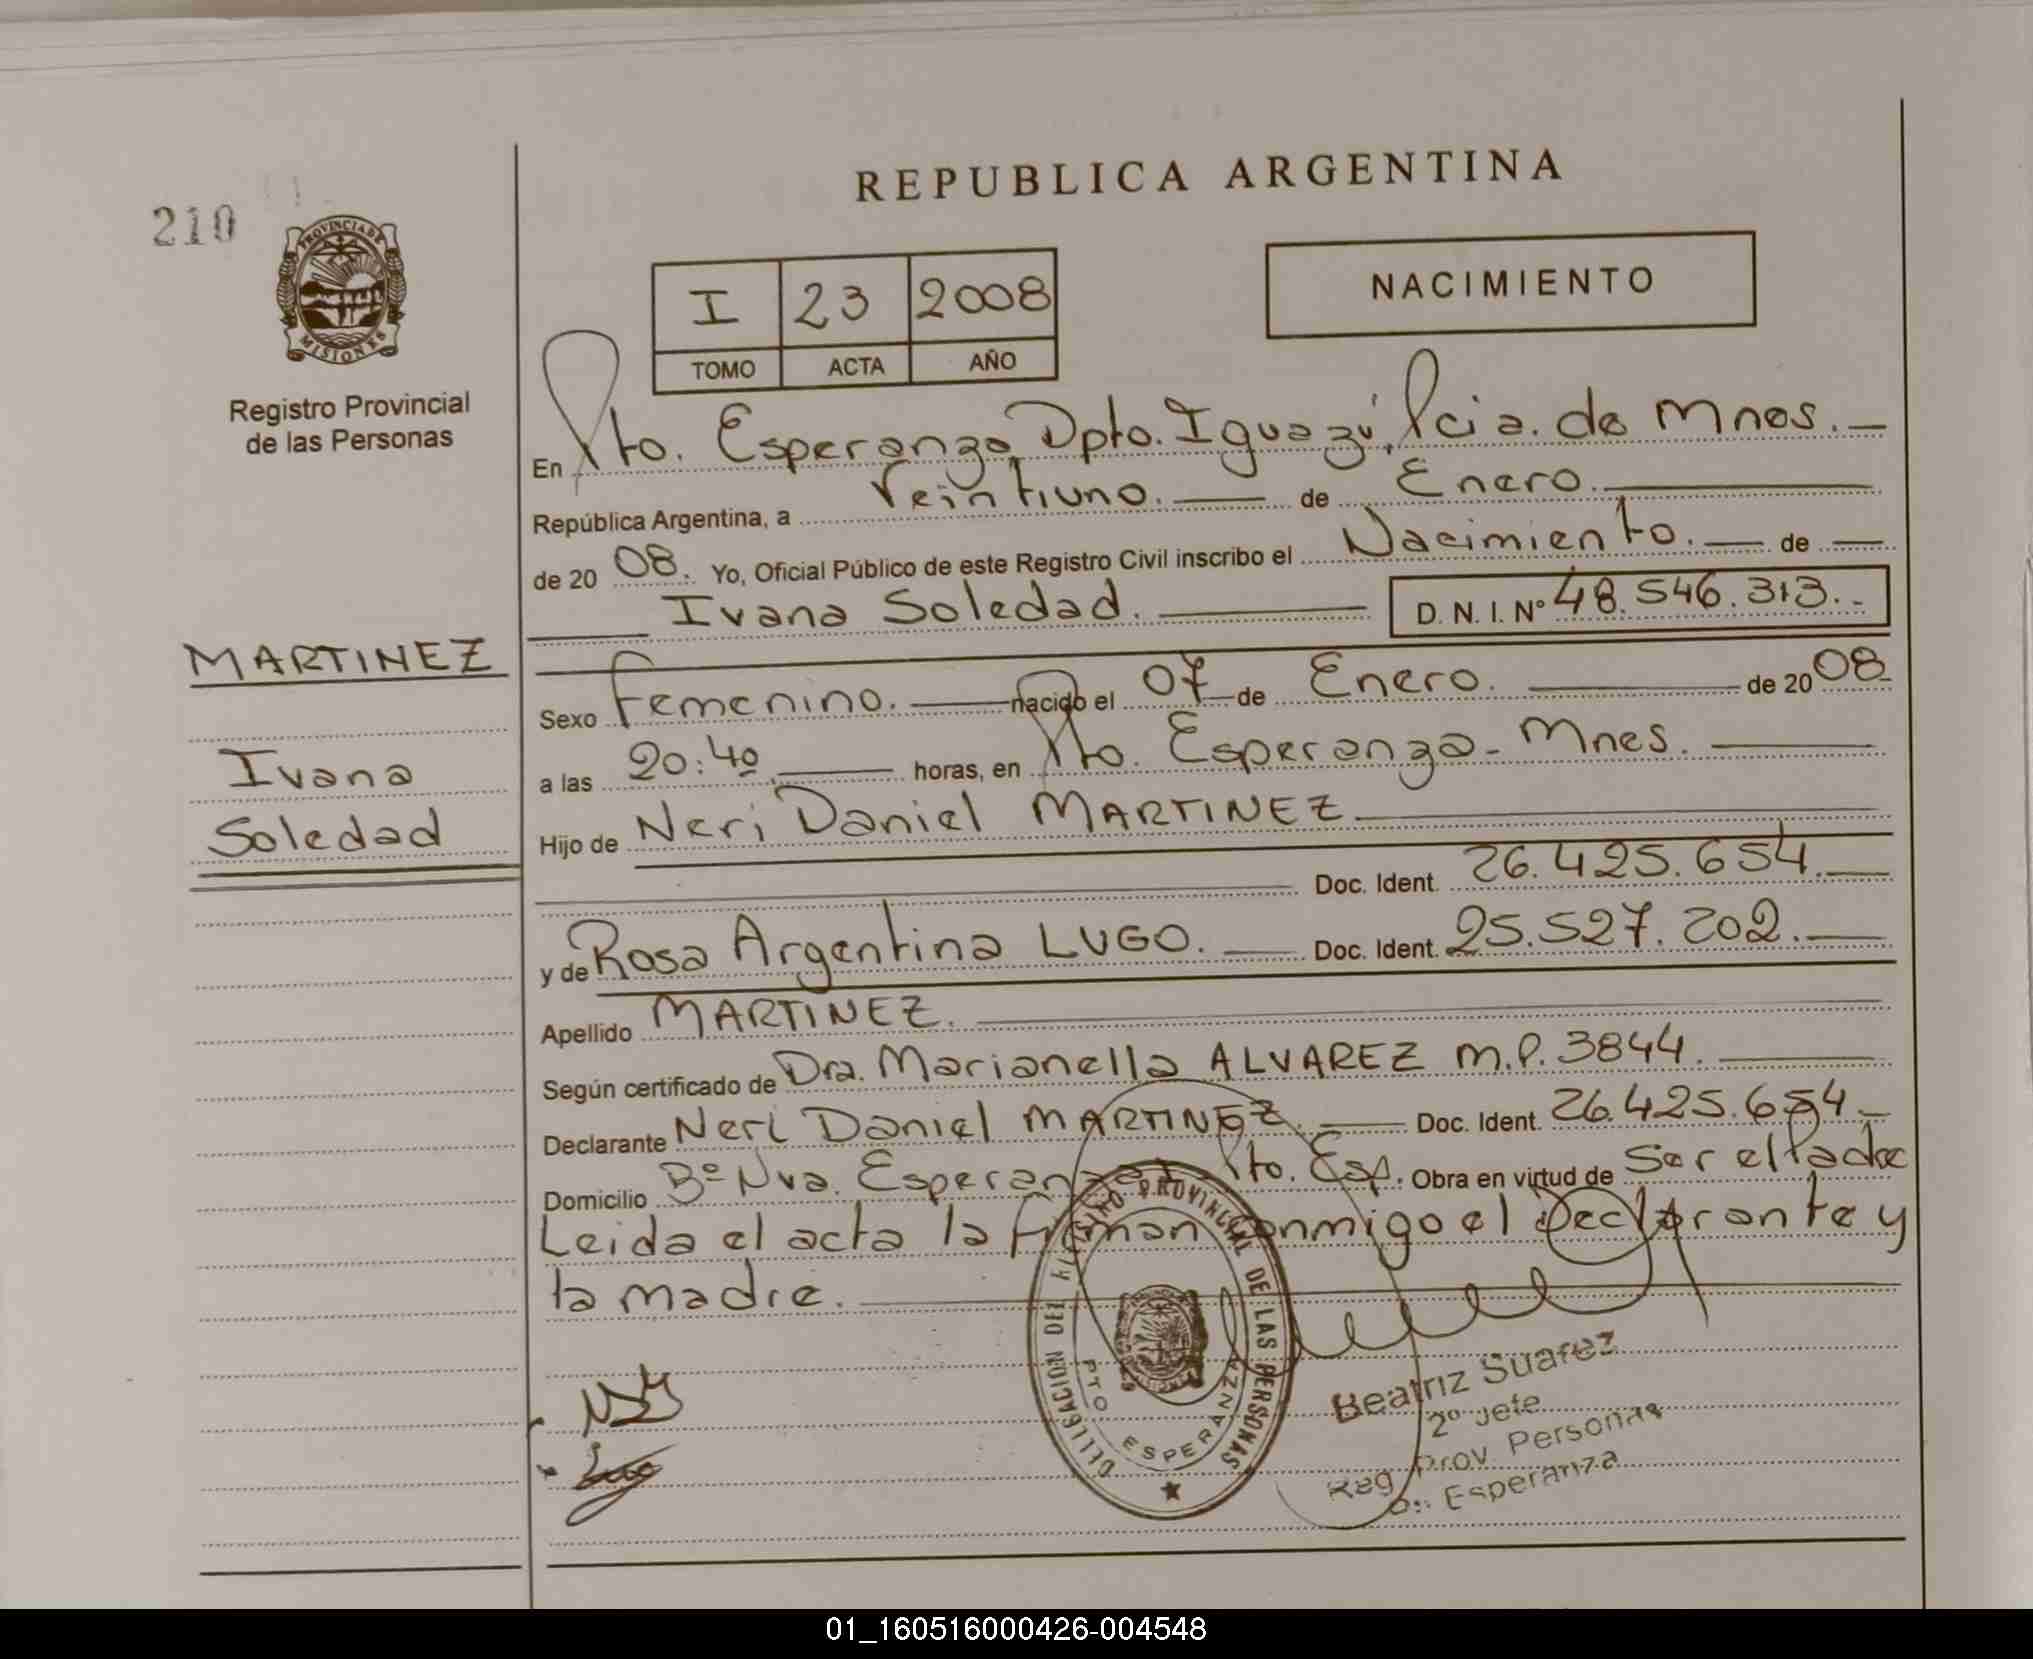 REPUBLICA ARGENTINA
210
PROVINCIA DE
MISIONES
Registro Provincial
de las Personas
I 23 2008
TOMO ACTA AÑO
NACIMIENTO
En Pto. Esperanza, Dpto. Iguazú, Pcia. de Mnes.
República Argentina, a Veintiuno. de Enero.
de 20 08. Yo, Oficial Público de este Registro Civil inscribo el Nacimiento. de
Ivana Soledad. D. N. I. N° 48.546.313.-
MARTINEZ
Ivana
Soledad
Sexo Femenino. nacido el 07 de Enero. de 20 08
a las 20:40 horas, en Pto. Esperanza - Mnes.
Hijo de Neri Daniel MARTINEZ
Doc. Ident. 26.425.654.
y de Rosa Argentina LUGO. Doc. Ident. 25.527.202.
Apellido MARTINEZ.
Según certificado de Dra. Marianella ALVAREZ M.P. 3844.
Declarante Neri Daniel MARTINEZ. Doc. Ident. 26.425.654.-
Domicilio Bº Nva. Esperanza Pto. Esp. Obra en virtud de Ser el Padre
Leida el acta la firman conmigo el Declarante y
la madre.
DELEGACION DEL REGISTRO PROVINCIAL DE LAS PERSONAS
PTO ESPERANZA
NDM
Lugo
Beatriz Suarez
2º Jefe
Reg. Prov. Personas
Esperanza
01_160516000426-004548